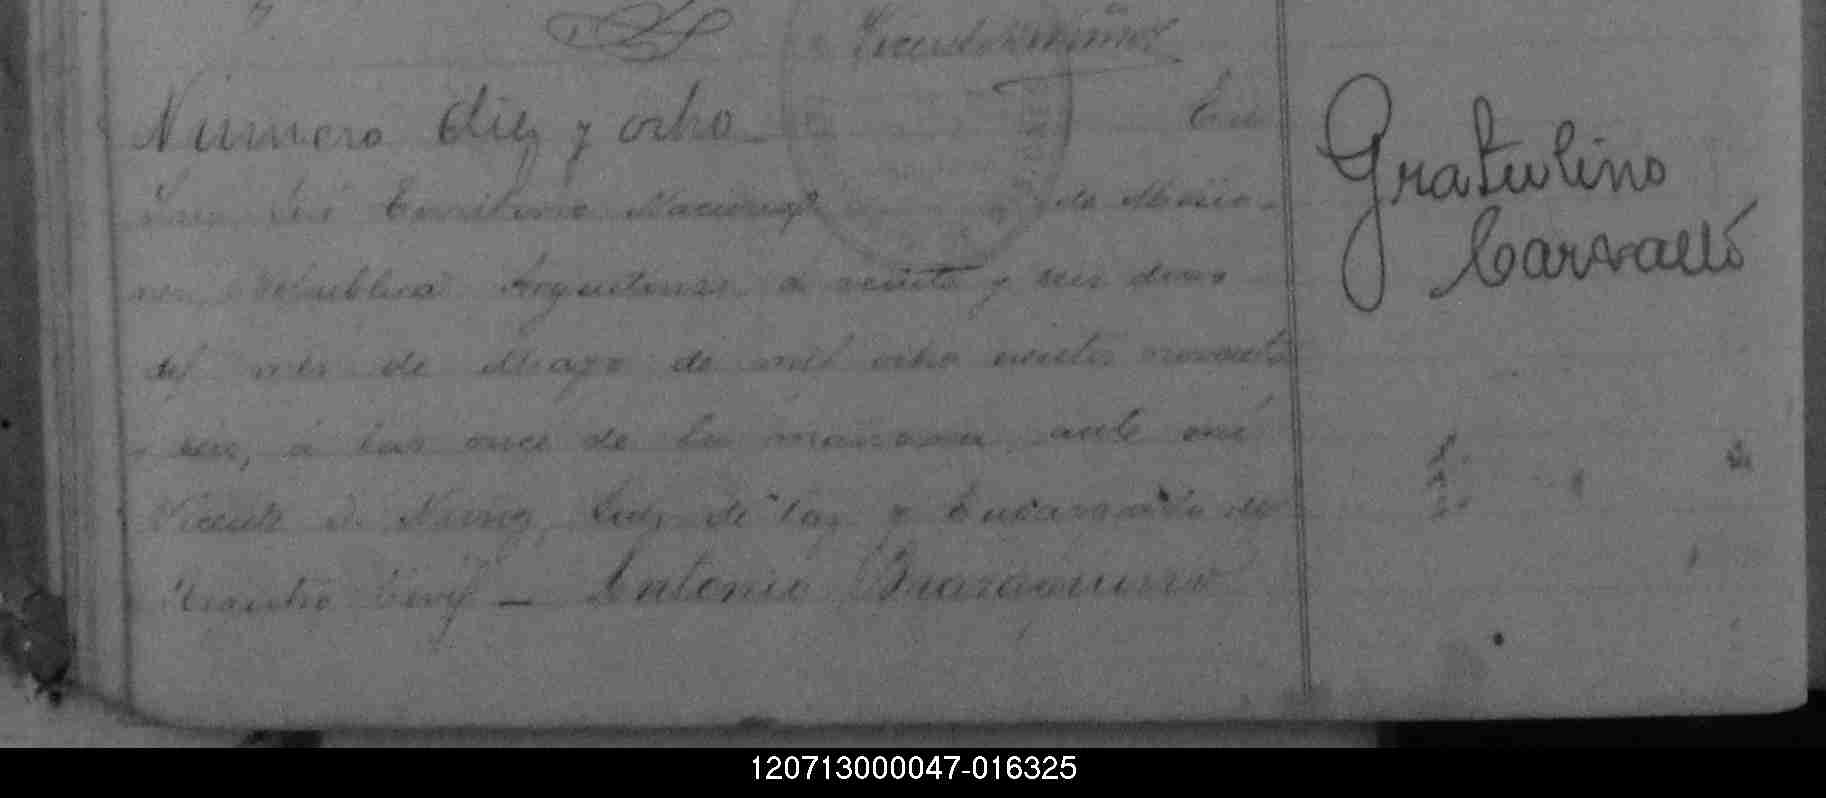 Vicente D. Nuñez
Número diez y ocho En
Territorio Nacional de Misio-
nes, República Argentina, a veinte y seis dias
del mes de Mayo de mil ocho cientos noventa
y seis, á las once de la mañana ante mi
Vicente D. Nuñez, Juez de Paz y Encargado del
Registro Civil — Antonio
Gratulino
Carvalló
120713000047-016325